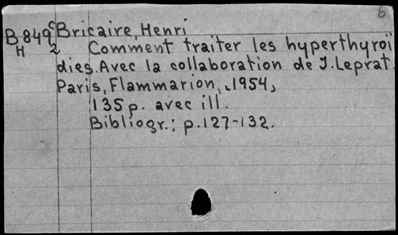 6
B849c Bricaire, Henri
H 2 Comment traiter les hyperthyroï
dies. Avec la collaboration de J. Leprat.
Paris, Flammarion, 1954,
135 p. avec ill.
Bibliogr.: p. 127-132.